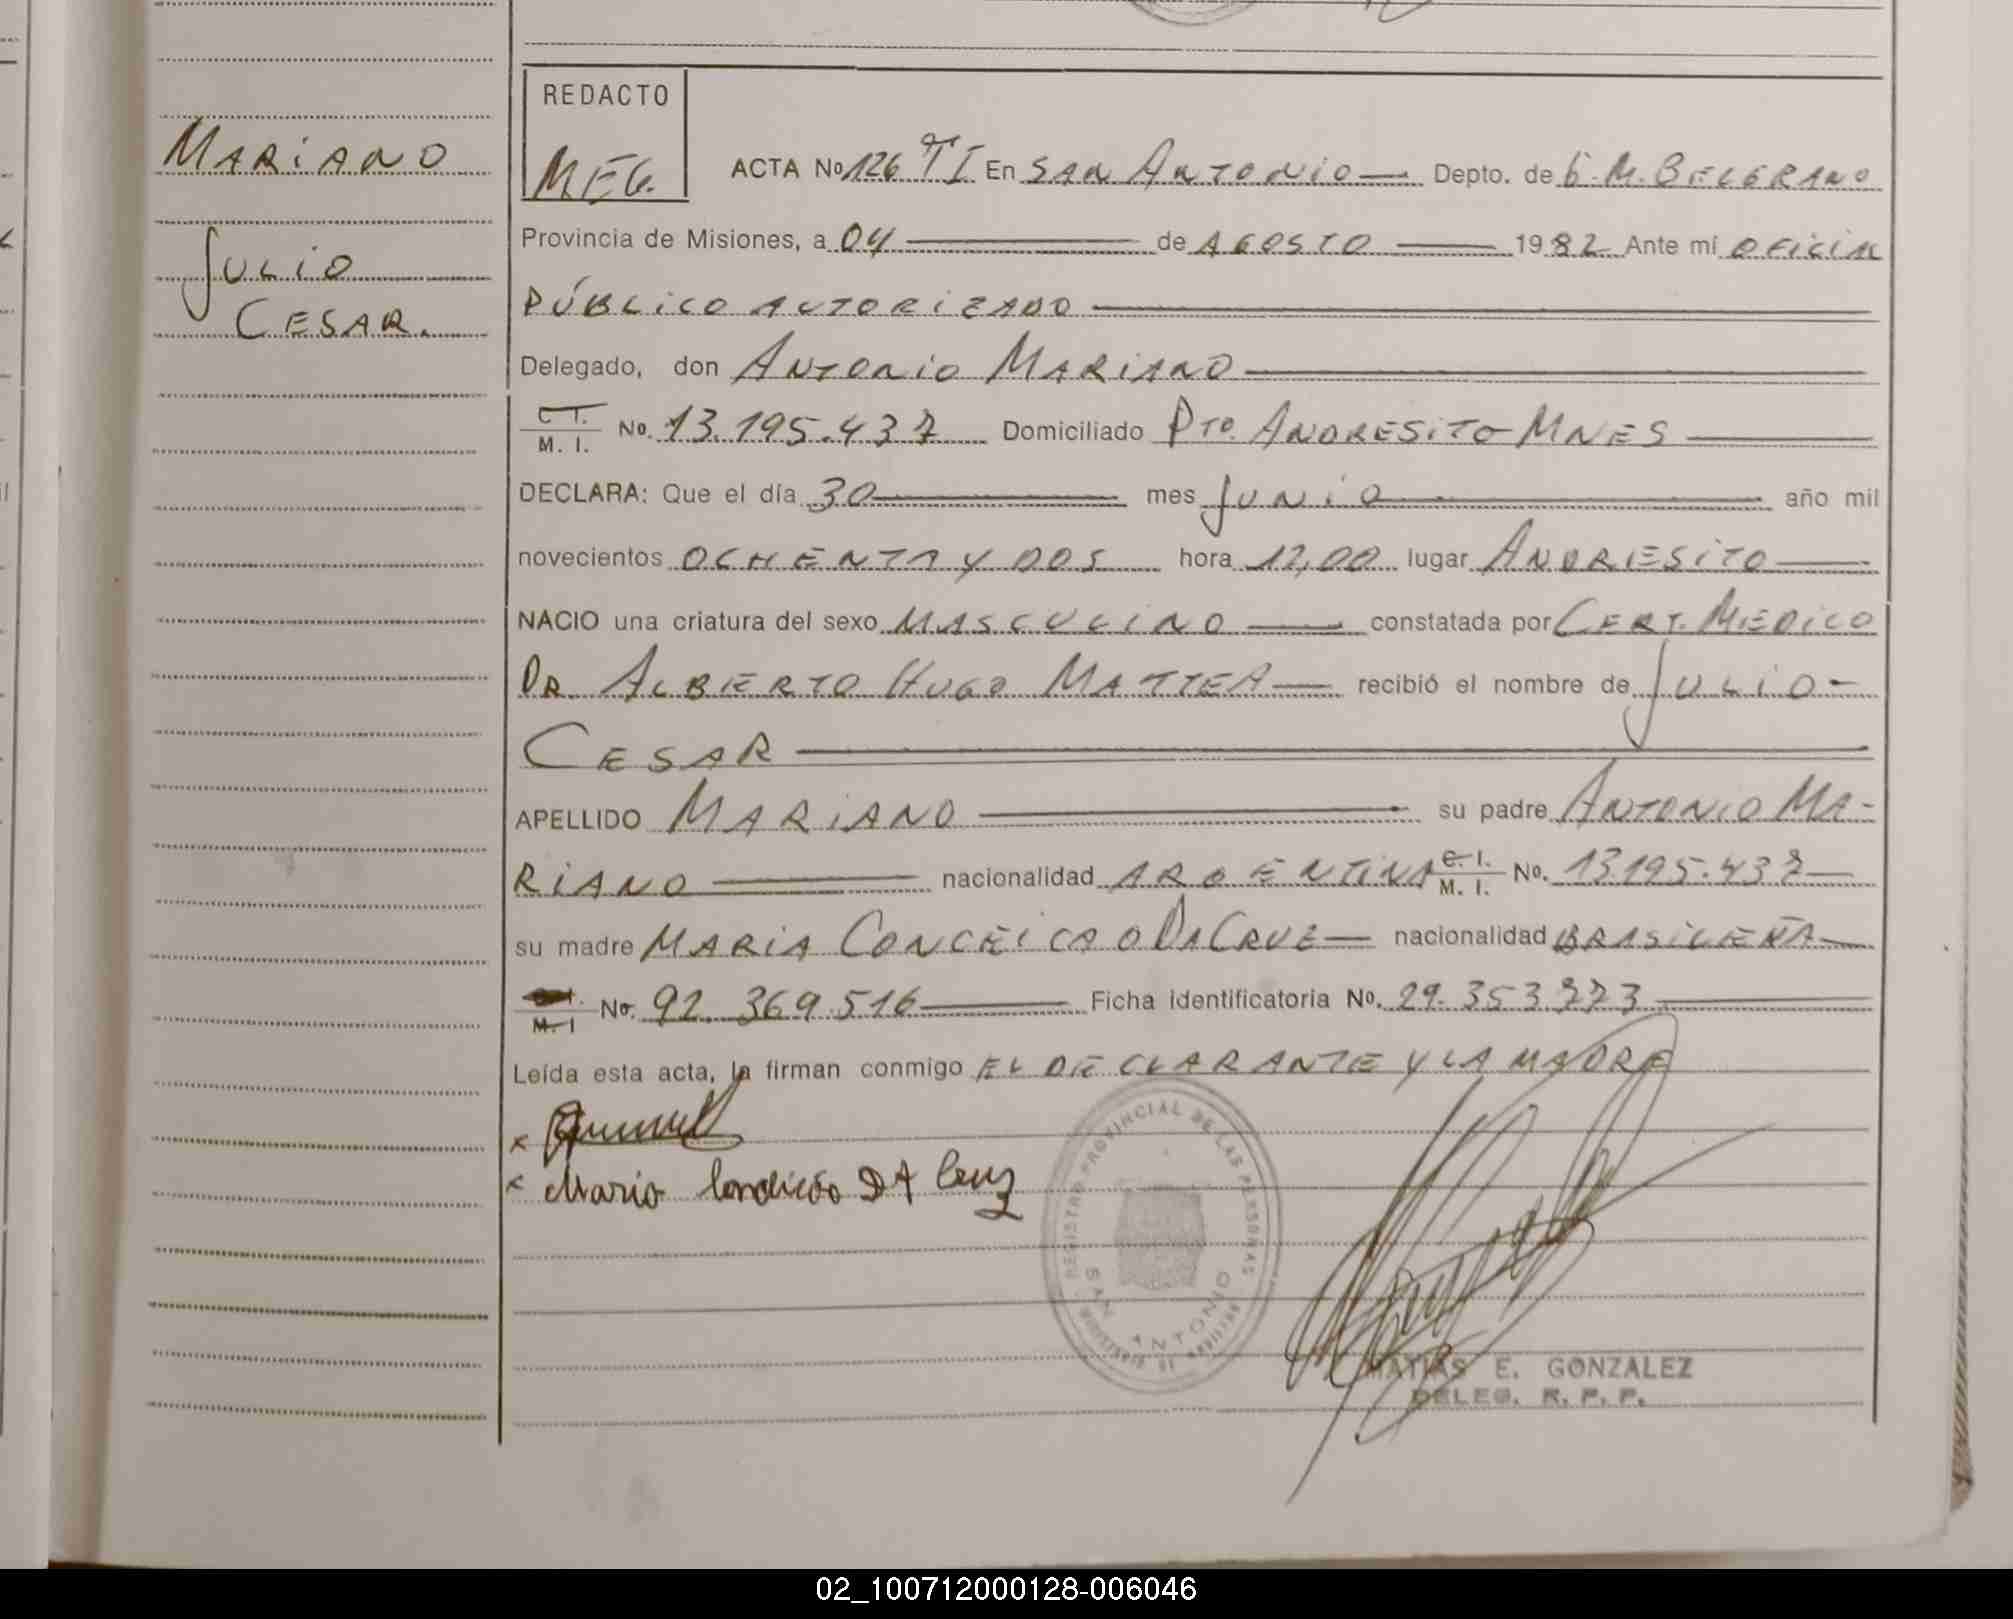 MARIANO
JULIO
CESAR.
REDACTO
MEG.
ACTA No 126 TI En SAN ANTONIO Depto. de G.M. BELGRANO
Provincia de Misiones, a 04 de AGOSTO 1982 Ante mí OFICIAL
PÚBLICO AUTORIZADO
Delegado, don ANTONIO MARIANO
C.I.
M. I. No. 13.195.437 Domiciliado PTO. ANDRESITO-MNES
DECLARA: Que el día 30 mes JUNIO año mil
novecientos OCHENTA Y DOS hora 12,00 lugar ANDRESITO
NACIO una criatura del sexo MASCULINO constatada por CERT. MEDICO
DR. ALBERTO HUGO MATTEA recibió el nombre de JULIO-
CESAR
APELLIDO MARIANO su padre ANTONIO MA-
RIANO nacionalidad ARGENTINA C.I. M. I. No. 13.195.437
su madre MARIA CONCEICAO DA CRUZ nacionalidad BRASILEÑA
M. I No. 92.369.516 Ficha identificatoria No. 29.353.773
Leída esta acta, la firman conmigo EL DECLARANTE Y LA MADRE
x
x Maria Condicão DA Cruz
REGISTRO PROVINCIAL DE LAS PERSONAS
SAN ANTONIO
MATIAS E. GONZALEZ
DELEG. R. P. P.
02_100712000128-006046